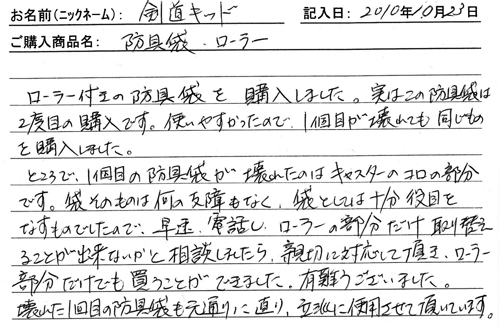 お名前(ニックネーム): 剣道キッド 記入日: 2010年10月23日
ご購入商品名: 防具袋・ローラー
ローラー付きの防具袋を購入しました。実はこの防具袋は
2度目の購入です。使いやすかったので、1個目が壊れても同じもの
を購入しました。
ところで、1個目の防具袋が壊れたのはキャスターのコロの部分
です。袋そのものは何の支障もなく、袋としては十分役目を
なすものでしたので、早速、電話し、ローラーの部分だけ取り替え
ることが出来ないかと相談したら、親切に対応して頂き、ローラー
部分だけでも買うことができました。有難うございました。
壊れた1回目の防具袋も元通りに直り、立派に使用させて頂いています。